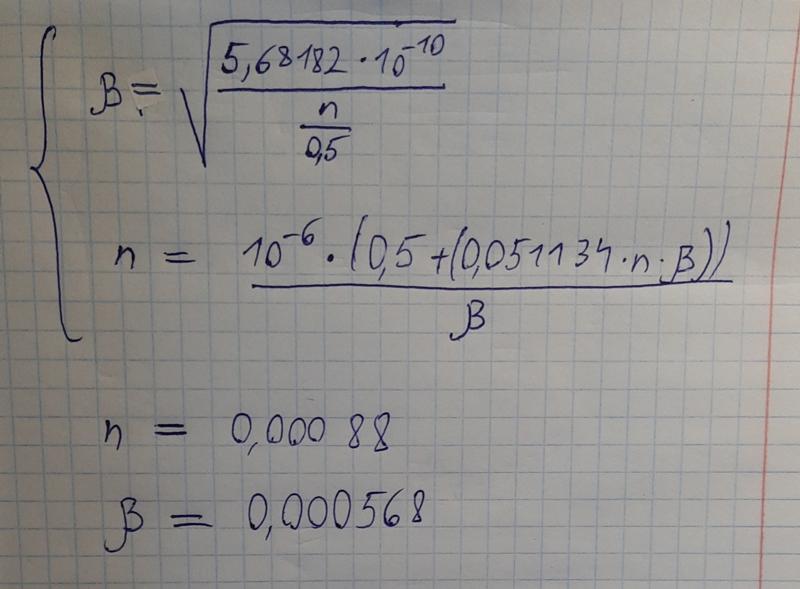 β = √((5,68182 · 10⁻¹⁰)/(n/0,5))
n = (10⁻⁶ · (0,5 + (0,051134 · n · β)))/β
n = 0,00088
β = 0,000568